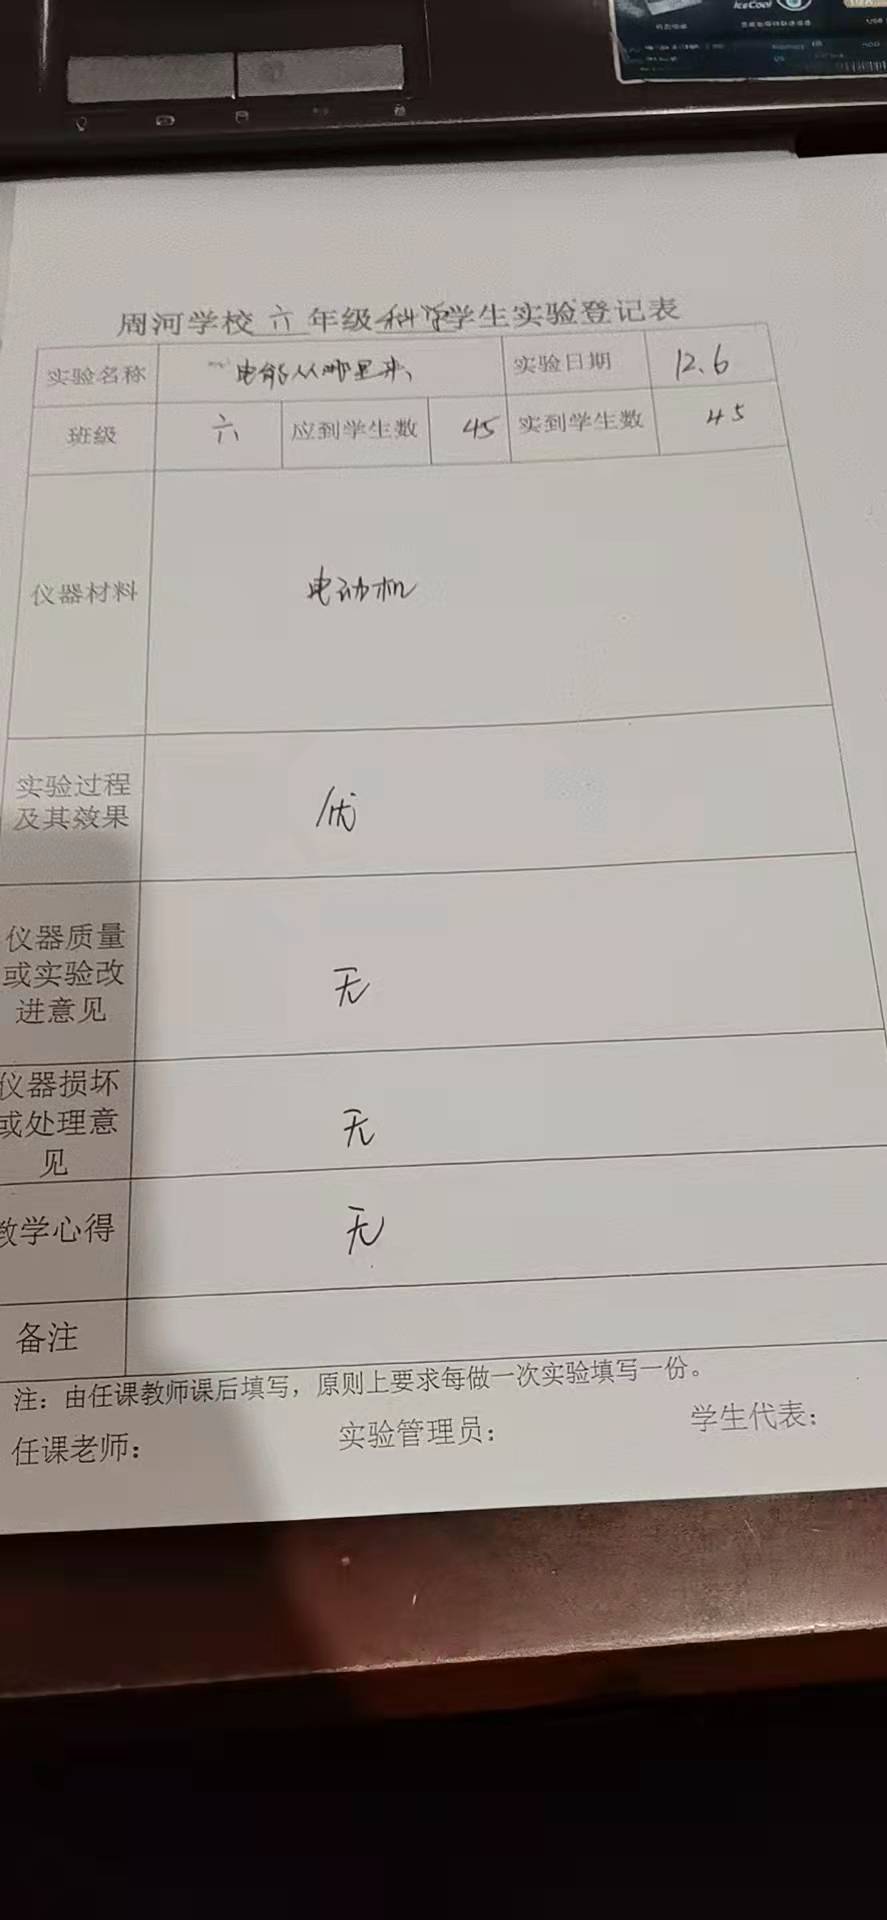 IceCool
周河学校六年级科学学生实验登记表
实验名称 电能从哪里来 实验日期 12.6
班级 六 应到学生数 45 实到学生数 45
仪器材料 电动机
实验过程
及其效果
优
仪器质量
或实验改
进意见
无
仪器损坏
或处理意
见
无
教学心得 无
备注
注：由任课教师课后填写，原则上要求每做一次实验填写一份。
任课老师： 实验管理员： 学生代表：